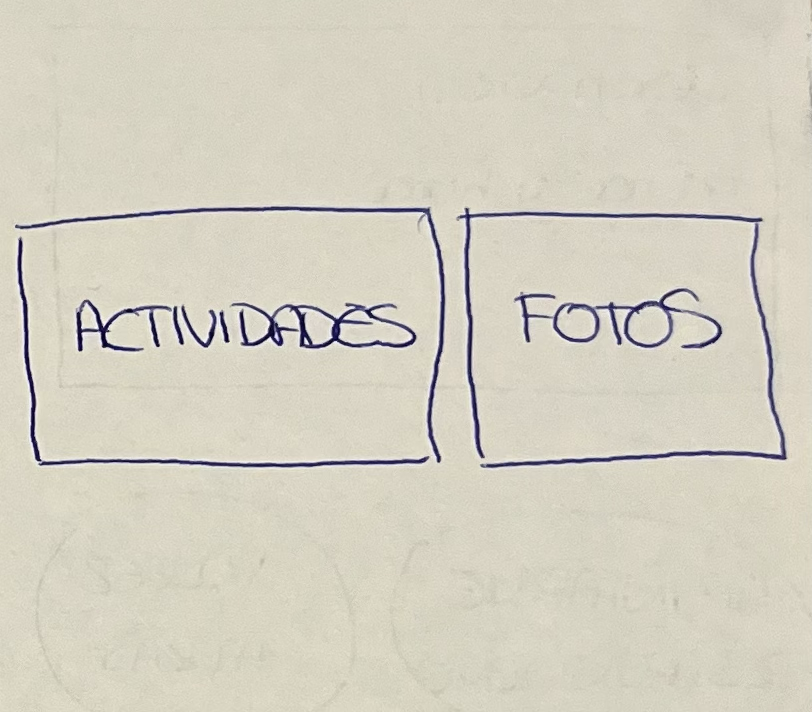 ACTIVIDADES
FOTOS